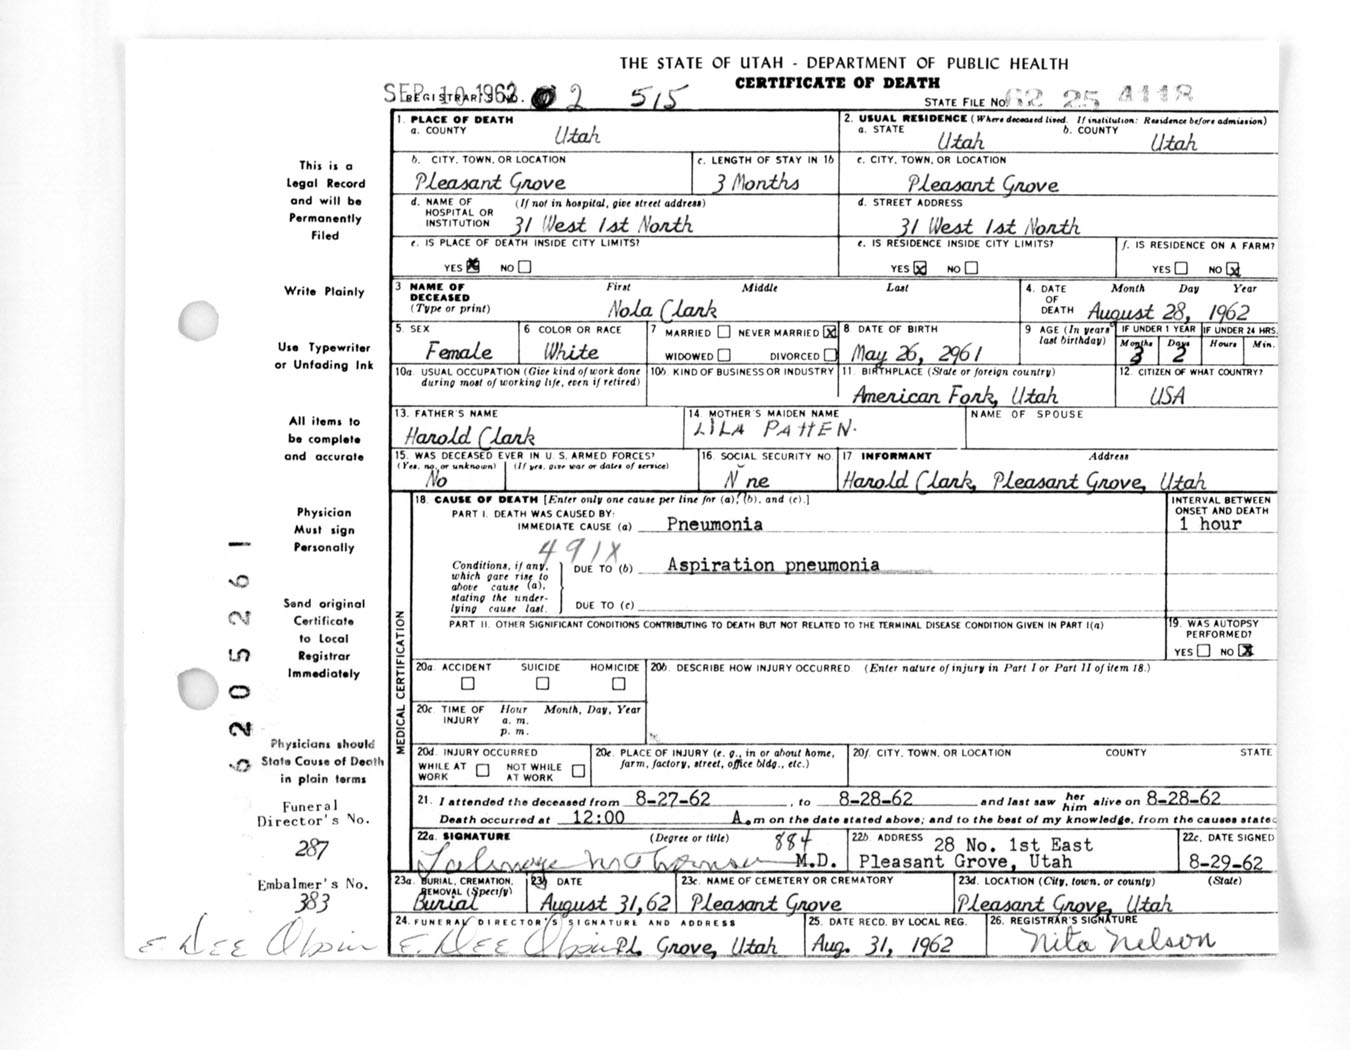 THE STATE OF UTAH - DEPARTMENT OF PUBLIC HEALTH
CERTIFICATE OF DEATH
SEP 10 1962
REGISTRAR'S NO. 2 515
STATE FILE NO. 62 25 4118
This is a
Legal Record
and will be
Permanently
Filed
Write Plainly
Use Typewriter
or Unfading Ink
All items to
be complete
and accurate
Physician
Must sign
Personally
Send original
Certificate
to Local
Registrar
Immediately
Physicians should
State Cause of Death
in plain terms
Funeral
Director's No.
287
Embalmer's No.
383
6205261
1. PLACE OF DEATH
a. COUNTY
Utah
2. USUAL RESIDENCE (Where deceased lived. If institution: Residence before admission)
a. STATE
Utah
b. COUNTY
Utah
b. CITY, TOWN, OR LOCATION
Pleasant Grove
c. LENGTH OF STAY IN 1b
3 Months
c. CITY, TOWN, OR LOCATION
Pleasant Grove
d. NAME OF HOSPITAL OR INSTITUTION
(If not in hospital, give street address)
31 West 1st North
d. STREET ADDRESS
31 West 1st North
e. IS PLACE OF DEATH INSIDE CITY LIMITS?
YES X NO
e. IS RESIDENCE INSIDE CITY LIMITS?
YES X NO
f. IS RESIDENCE ON A FARM?
YES NO X
3 NAME OF DECEASED (Type or print)
First Middle Last
Nola Clark
4. DATE OF DEATH
Month Day Year
August 28, 1962
5. SEX
Female
6 COLOR OR RACE
White
7 MARRIED NEVER MARRIED X
WIDOWED DIVORCED
8 DATE OF BIRTH
May 26, 2961
9 AGE (In years last birthday)
IF UNDER 1 YEAR
Months 3 Days 2
IF UNDER 24 HRS.
Hours Min.
10a. USUAL OCCUPATION (Give kind of work done during most of working life, even if retired)
10b. KIND OF BUSINESS OR INDUSTRY
11 BIRTHPLACE (State or foreign country)
American Fork, Utah
12 CITIZEN OF WHAT COUNTRY?
USA
13. FATHER'S NAME
Harold Clark
14 MOTHER'S MAIDEN NAME
LILA PATTEN.
NAME OF SPOUSE
15. WAS DECEASED EVER IN U.S. ARMED FORCES?
(Yes, no, or unknown) (If yes, give war or dates of service)
No
16 SOCIAL SECURITY NO.
N ne
17 INFORMANT Address
Harold Clark, Pleasant Grove, Utah
MEDICAL CERTIFICATION
18. CAUSE OF DEATH [Enter only one cause per line for (a), (b), and (c).]
PART I. DEATH WAS CAUSED BY:
IMMEDIATE CAUSE (a) Pneumonia
INTERVAL BETWEEN ONSET AND DEATH
1 hour
491X
Conditions, if any, which gave rise to above cause (a), stating the underlying cause last.
DUE TO (b) Aspiration pneumonia
DUE TO (c)
PART II. OTHER SIGNIFICANT CONDITIONS CONTRIBUTING TO DEATH BUT NOT RELATED TO THE TERMINAL DISEASE CONDITION GIVEN IN PART I(a)
19. WAS AUTOPSY PERFORMED?
YES NO X
20a. ACCIDENT SUICIDE HOMICIDE
20b. DESCRIBE HOW INJURY OCCURRED (Enter nature of injury in Part I or Part II of item 18.)
20c. TIME OF INJURY Hour Month, Day, Year
a. m.
p. m.
20d. INJURY OCCURRED
WHILE AT WORK NOT WHILE AT WORK
20e. PLACE OF INJURY (e. g., in or about home, farm, factory, street, office bldg., etc.)
20f. CITY, TOWN, OR LOCATION COUNTY STATE
21. I attended the deceased from 8-27-62, to 8-28-62 and last saw her him alive on 8-28-62
Death occurred at 12:00 A.m on the date stated above; and to the best of my knowledge, from the causes stated
22a. SIGNATURE (Degree or title)
884
M.D.
22b. ADDRESS 28 No. 1st East
Pleasant Grove, Utah
22c. DATE SIGNED
8-29-62
23a. BURIAL, CREMATION, REMOVAL (Specify)
Burial
23b DATE
August 31, 62
23c. NAME OF CEMETERY OR CREMATORY
Pleasant Grove
23d. LOCATION (City, town, or county) (State)
Pleasant Grove, Utah
24. FUNERAL DIRECTOR'S SIGNATURE AND ADDRESS
E. DEE Pl. Grove, Utah
25. DATE RECD. BY LOCAL REG.
Aug. 31, 1962
26. REGISTRAR'S SIGNATURE
Nita Nelson
E. DEE